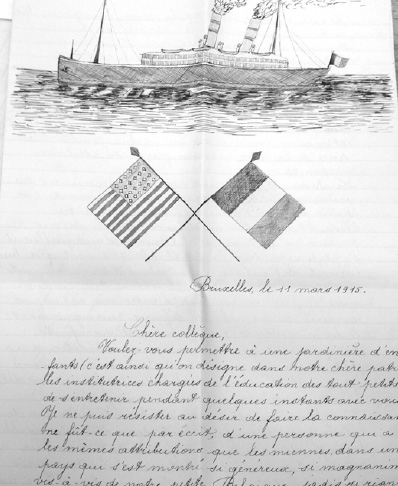 Bruxelles, le 11 mars 1915.
Chère collègue,
Voulez-vous permettre à une jardinière d'en
fants (c'est ainsi qu'on désigne dans notre chère patr
les institutrices chargées de l'éducation des tout petits
de s'entretenir pendant quelques instants avec vous
Je ne puis résister au désir de faire la connaissan
ne fût-ce que par écrit, d'une personne qui a
les mêmes attributions que les miennes, dans un
pays qui s'est montré si généreux, si magnanim
vis-à-vis de notre petite Belgique, jadis si rian